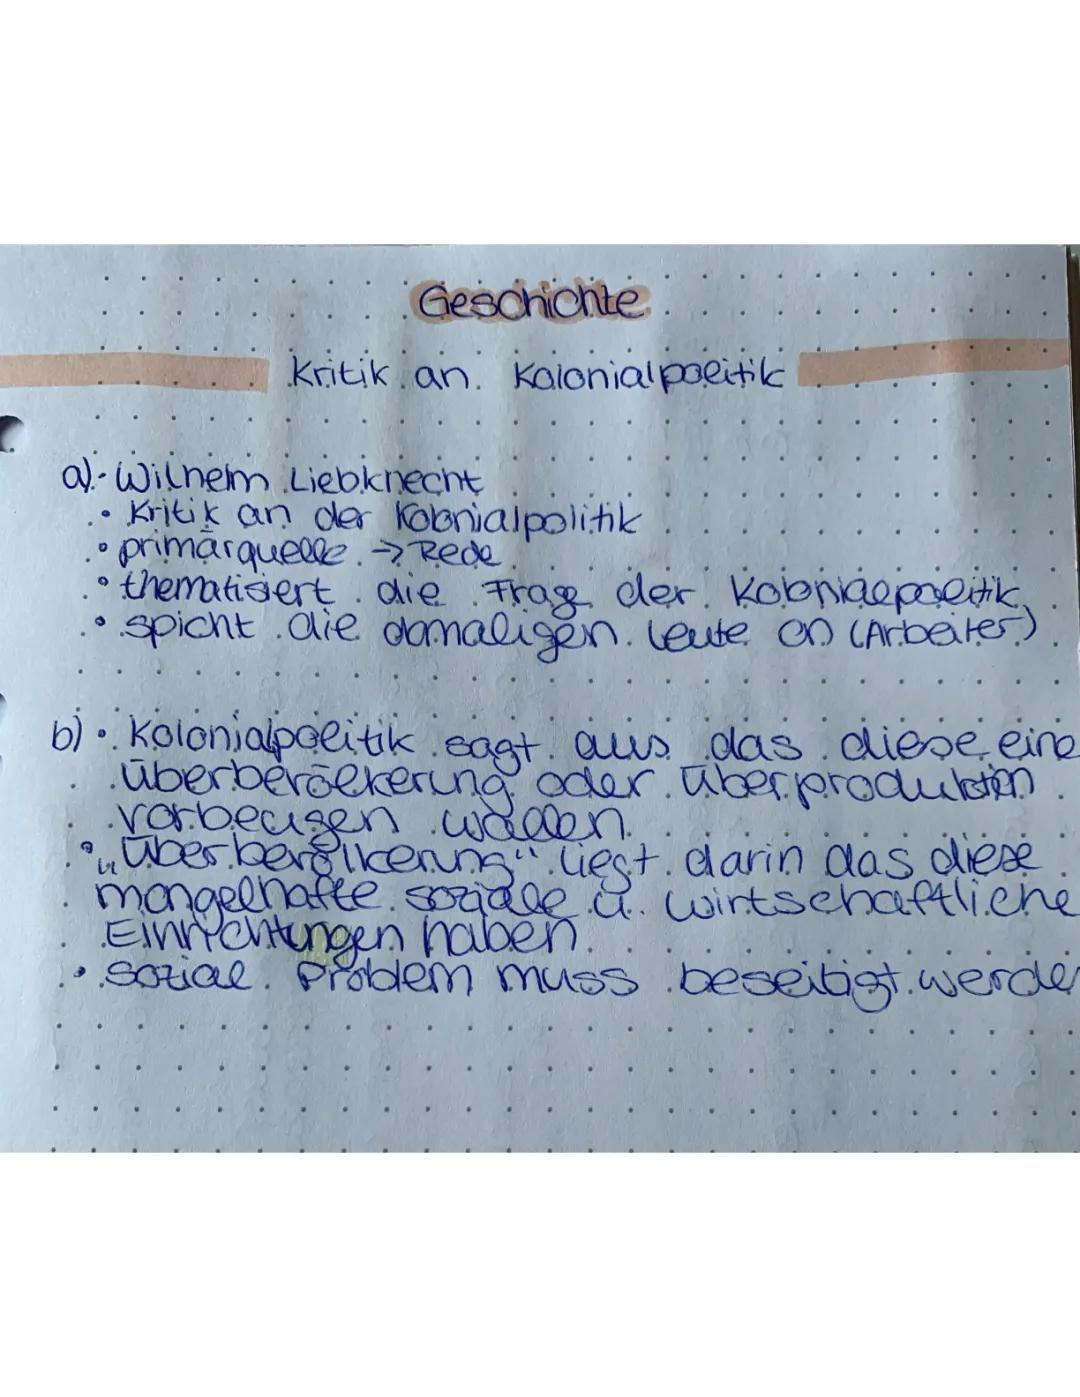 Geschichte
Kritik an Kolonialpolitik
a) · Wilhelm Liebknecht
· Kritik an der Kolonialpolitik
· primärquelle → Rede
· thematisiert die Frage der Kolonialpolitik
· spicht die damaligen Leute an (Arbeiter)
b) · Kolonialpolitik sagt aus das diese eine
überbevölkerung oder überproduktion
vorbeugen wollen.
· „Überbevölkerung" liegt darin das diese
mangelhafte soziale u. wirtschaftliche
Einrichtungen haben
· sozial Problem muss beseitigt werden